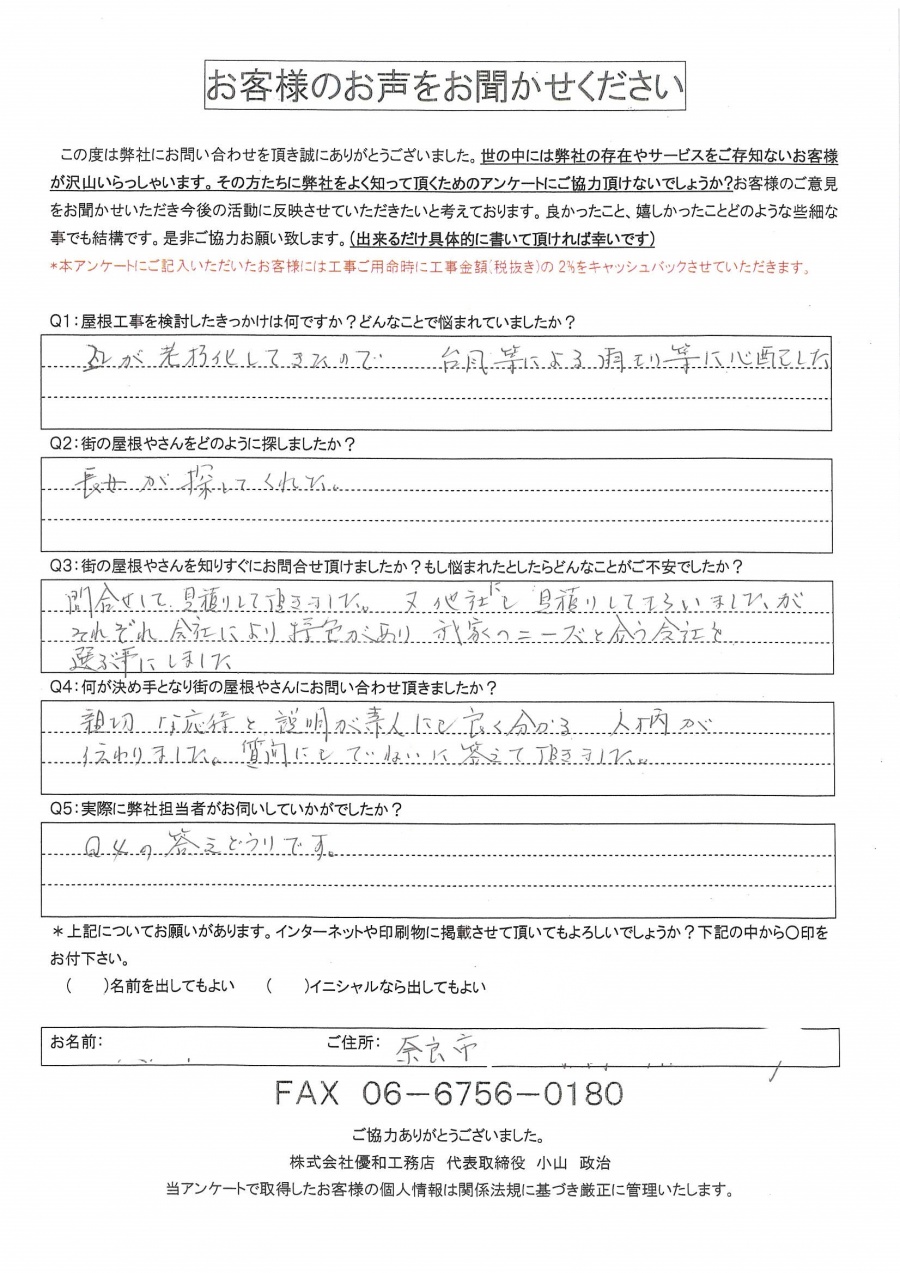 お客様のお声をお聞かせください
この度は弊社にお問い合わせを頂き誠にありがとうございました。世の中には弊社の存在やサービスをご存知ないお客様
が沢山いらっしゃいます。その方たちに弊社をよく知って頂くためのアンケートにご協力頂けないでしょうか?お客様のご意見
をお聞かせいただき今後の活動に反映させていただきたいと考えております。良かったこと、嬉しかったことどのような些細な
事でも結構です。是非ご協力お願い致します。(出来るだけ具体的に書いて頂ければ幸いです)
*本アンケートにご記入いただいたお客様には工事ご用命時に工事金額(税抜き)の 2%をキャッシュバックさせていただきます。
Q1:屋根工事を検討したきっかけは何ですか?どんなことで悩まれていましたか?
瓦が老朽化してきたので 台風等による雨もり等に心配した
Q2:街の屋根やさんをどのように探しましたか?
長女が探してくれた。
Q3:街の屋根やさんを知りすぐにお問合せ頂けましたか?もし悩まれたとしたらどんなことがご不安でしたか?
問合せして、見積りして頂きました。 又他社にも見積りしてもらいましたが
それぞれ会社により特色があり 我家のニーズと合う会社を
選ぶ事にしました
Q4:何が決め手となり街の屋根やさんにお問い合わせ頂きましたか?
親切な応待と説明が素人にも良く分かる 人柄が
伝わりました。質問にもていねいに答えて頂きました。
Q5:実際に弊社担当者がお伺いしていかがでしたか?
Q4の答えどうりです。
*上記についてお願いがあります。インターネットや印刷物に掲載させて頂いてもよろしいでしょうか?下記の中から○印を
お付下さい。
( )名前を出してもよい ( )イニシャルなら出してもよい
お名前: ご住所: 奈良市
FAX 06-6756-0180
ご協力ありがとうございました。
株式会社優和工務店 代表取締役 小山 政治
当アンケートで取得したお客様の個人情報は関係法規に基づき厳正に管理いたします。